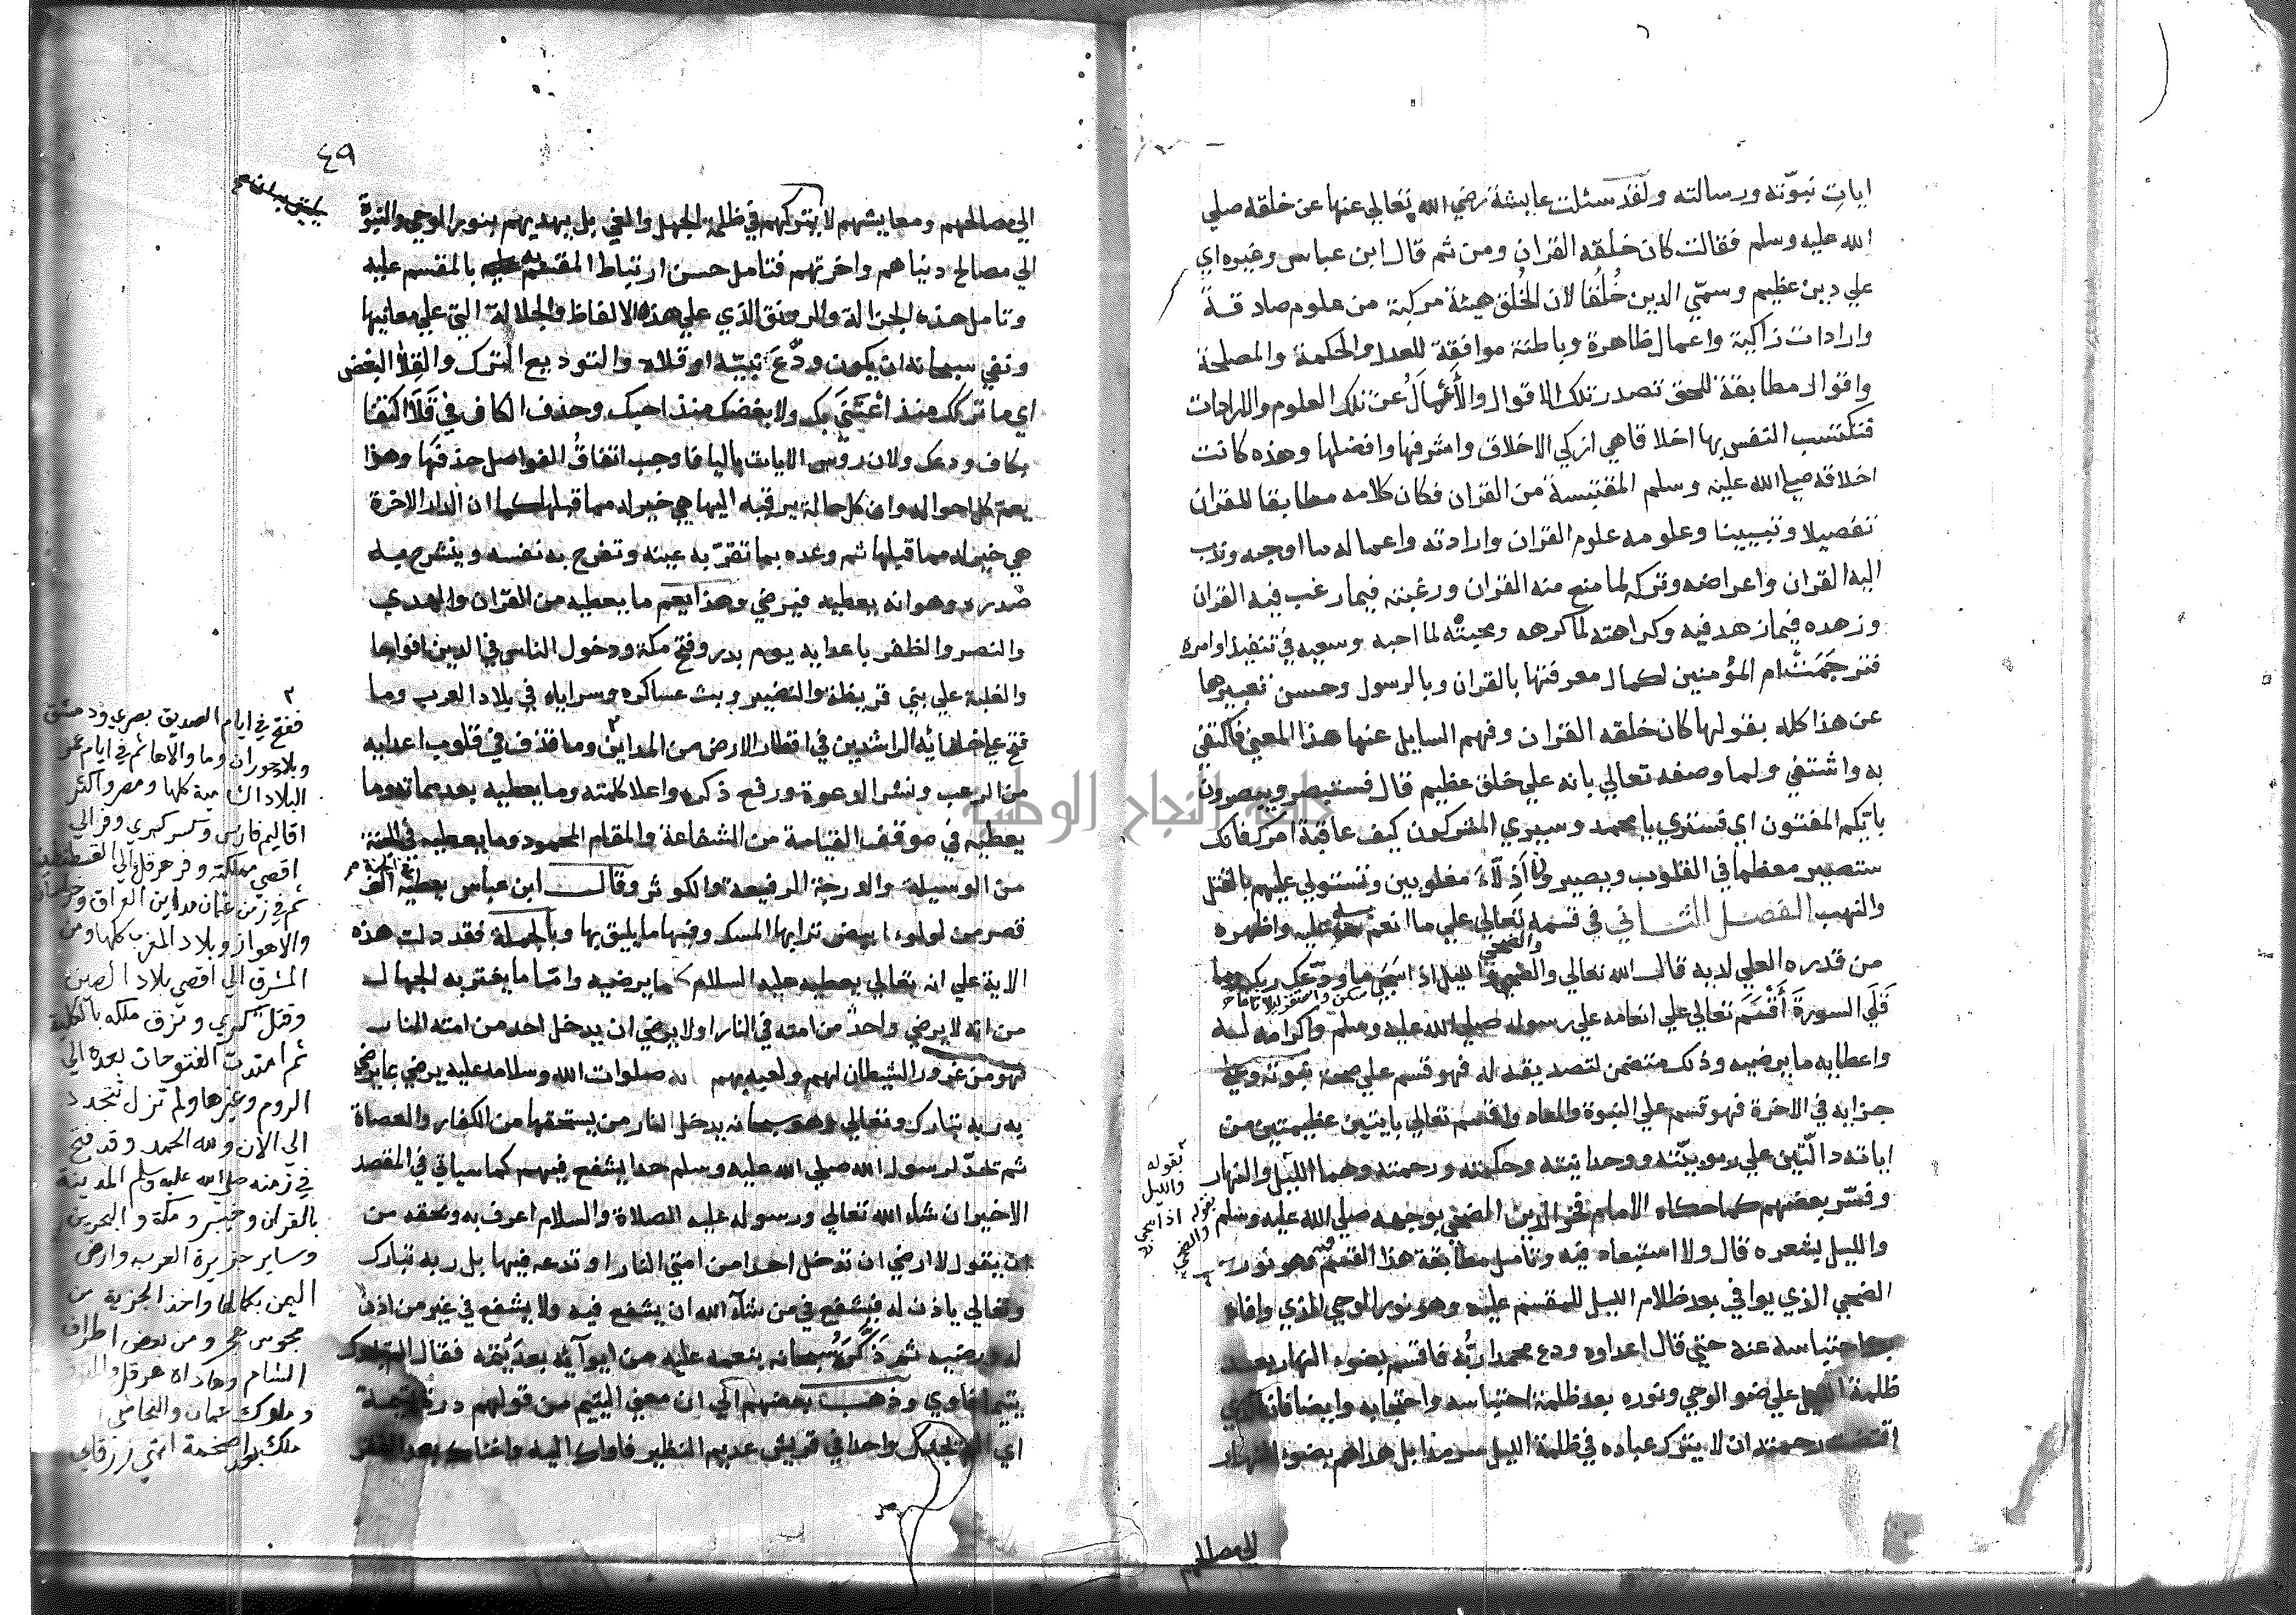 ايات نبوّته ورسالته ولقد سئلت عايشة رضي الله تعالي عنها عن خلقه صلي
الله عليه وسلم فقالت كان خلقه القران ومن ثم قال ابن عباس وغيره اي
علي دين عظيم وسمّي الدين خُلُقا لان الخُلق هيئة مركبة من علوم صادقة
وارادات زاكية واعمال ظاهرة وباطنة موافقة للعدل والحكمة والمصلحة
واقوال مطابقة للحق تصدر تلك الاقوال والأعمالُ عن تلك العلوم والارادات
فتكتسب النفس بها اخلاقا هي ازكي الاخلاق واشرفها وافضلها وهذه كانت
اخلاقه صلي الله عليه وسلم المقتبسة من القران فكان كلامه مطابقا للقران
تفصيلا وتبيينا وعلومه علوم القران وارادته واعماله ما اوجبه وندب
اليه القران واعراضه وتركه لما منع منه القران ورغبته فيما رغب فيه القران
وزهده فيما زهد فيه وكراهته لما كرهه ومحبته لما احبه وسعيه في تنفيذ اوامره
فترجَمَت ام المؤمنين لكمال معرفتها بالقران وبالرسول وحسن تعبيرها
عن هذا كله بقولها كان خلقه القران وفهم السايل عنها هذا المعني فاكتفي
به واشتفي ولما وصفه تعالي بانه علي خلق عظيم قال فستبصر ويبصرون
بايّكم المفتون اي فستري يا محمد وسيري المشركون كيف عاقبة امرك فانك
ستصير معظما في القلوب ويصيرون أذِلّاءَ مغلوبين وتستولي عليهم بالقتل
والنهب الفصل الثاني في قسمه تعالي علي ما انعم به عليه واظهره
من قدره العلي لديه قال الله تعالي والضحي والليل اذا سجي ما ودّعك ربك وما
قَلَي السورةَ أَقْسَمَ تعالي علي انعامه علي رسوله صلي الله عليه وسلم واكرامه له
واعطايه ما يرضيه وذلك متضمن لتصديقه له فهو قسم علي صحة نبوته وعلي
جزايه في الاخرة فهو قسم علي النبوة والمعاد واقسم تعالي بايتين عظيمتين من
اياته دالّتين علي ربوبيّته ووحدانيته وحكمته ورحمته وهما الليل والنهار
وفسّر بعضهم كما حكاه الامام فخر الدين الضحي بوجهه صلي الله عليه وسلم
والليل بشعره قال ولا استبعاد فيه وتامل مطابقة هذا القسم وهو نور
الضحي الذي يوافي بعد ظلام الليل للمقسم عليه وهو نور الوحي الذي وافاه
بعد احتباسه عنه حتي قال اعداوه ودع محمدا ربُّه فاقسم بضوء النهار بعد
ظلمة الليل علي ضو الوحي ونوره بعد ظلمة احتباسه واحتجابه وايضا فان الذي
اقتضت رحمته ان لا يترك عباده في ظلمة الليل سرمدا بل هداهم بضوء النهار
الي مصالحهم
بقوله
والليل
اذا سجي
والضحي
٤٩
الي مصالحهم ومعايشهم لا يتركهم في ظلمة الجهل والغي بل يهديهم بنور الوحي والنبوّة
الي مصالح دنياهم واخرتهم فتامل حسن ارتباط المقسم به بالمقسم عليه
وتامل هذه الجزالة والرونق الذي علي هذه الالفاظ والجلالة التي علي معانيها
ونفي سبحانه ان يكون ودَّعَ نبيّه او قلاه والتوديع الترك والقِلا البغض
اي ما تركك منذ اعتني بك ولا بغضك منذ احبك وحذف الكاف في قَلَا اكتفا
بكاف ودعك ولان روس الايات باليا فاوجب اتفاقُ الفواصل حذفَها وهذا
يعمّ كل احواله وان كل حالة يرقيه اليها هي خير له مما قبلها كما ان الدار الاخرة
هي خير له مما قبلها ثم وعده بما تقرّ به عينه وتفرح به نفسه وينشرح به
صدره وهو انه يعطيه فيرضي وهذا يعم ما يعطيه من القران والهدي
والنصر والظفر باعدايه يوم بدر وفتح مكة ودخول الناس في الدين افواجا
والغلبة علي بني قريظة والنضير وبث عساكره وسراياه في بلاد العرب وما
فتح علي خلفائه الراشدين في اقطار الارض من المداين وما قذف في قلوب اعدايه
من الرعب ونشر الدعوة ورفع ذكره واعلا كلمته وما يعطيه بعد مماته وما
يعطيه في موقف القيامة من الشفاعة والمقام المحمود وما يعطيه في الجنة
من الوسيلة والدرجة الرفيعة والكوثر وقال ابن عباس يعطيه الف
قصر من لولوء ابيض ترابها المسك وفيها ما يليق بها وبالجملة فقد دلت هذه
الاية علي انه تعالي يعطيه عليه السلام كلما يرضيه وامّا ما يغتر به الجهال
من انه لا يرضي واحدٌ من امته في النار او لا يرضي ان يدخل احد من امته النار
فهو من غرور الشيطان لهم ولعبه بهم فانه صلوات الله وسلامه عليه يرضي بما يرضي
به ربه تبارك وتعالي وهو سبحانه يدخل النار من يستحقها من الكفار والعصاة
ثم يحدّ لرسول الله صلي الله عليه وسلم حدا يشفع فيهم كما سياتي في المقصد
الاخير ان شاء الله تعالي ورسوله عليه الصلاة والسلام اعرف به وبحقه من
ان يقول لا ارضي ان تدخل احدا من امتي النار او تدعه فيها بل ربه تبارك
وتعالي ياذن له فيشفع في من شاء الله ان يشفع فيه ولا يشفع في غير من اذن
له ورضيه ثم ذكَّرَ سُبحانه بنعمه عليه من ايوآئه بعد يُتمه فقال الم يجدك
يتيما فاوي وذهب بعضهم الي ان معني اليتيم من قولهم درة يتيمة
اي الم يجدك واحدا في قريش عديم النظير فاواك اليه واغناك بعد الفقر
٢
ففتح في ايام الصديق بصري ودمشق
وبلاد حوران وما والاها ثم في ايام عمر
البلاد الشامية كلها ومصر واكثر
اقاليم فارس وكسر كسري وفر الي
اقصي مملكته وفر هرقل الي القسطنطينية
ثم في زمن عثمان مداين العراق وخراسان
والاهواز وبلاد المغرب كلها ومن
المشرق الي اقصي بلاد الصين
وقتل كسري وتمزق ملكه بالكلية
ثم امتدت الفتوحات بعده الي
الروم وغيرها ولم تزل تتجدد
الي الان ولله الحمد وقد فتح
في زمنه صلي الله عليه وسلم المدينة
بالقران وخيبر ومكة والبحرين
وساير جزيرة العرب وارض
اليمن بكمالها واخذ الجزية من
مجوس هجر ومن بعض اطراف
الشام وهاداه هرقل
وملوك عمان والنجاشي
ملك اصحمة انتهي زرقاني
جامعة النجاح الوطنية